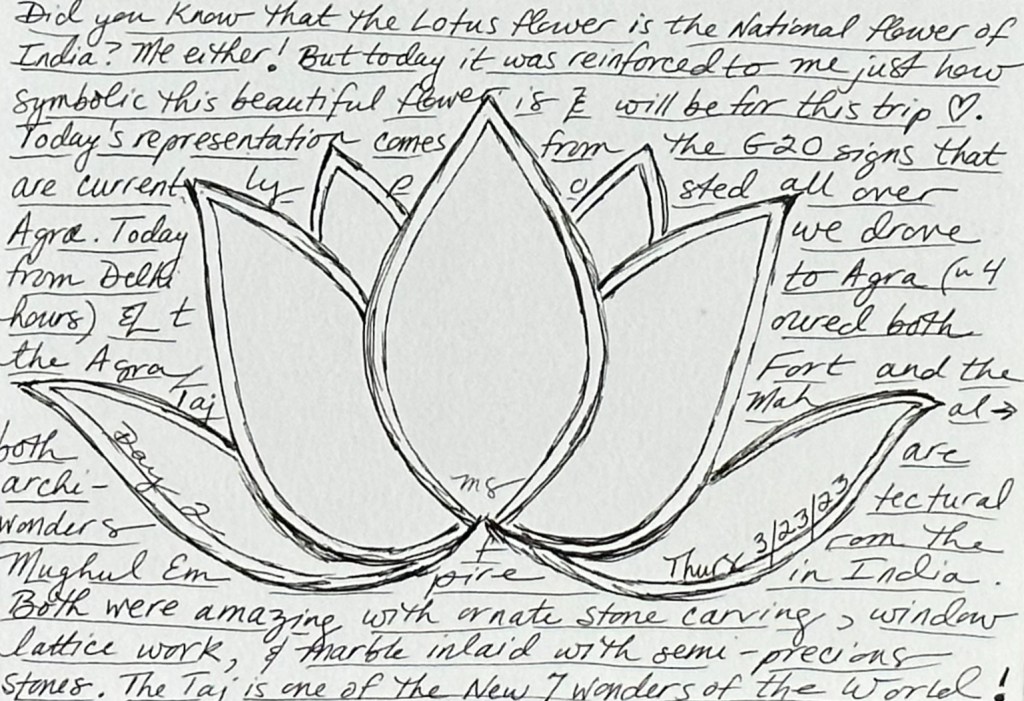 Did you know that the Lotus flower is the National flower of
India? Me either! But today it was reinforced to me just how
symbolic this beautiful flower is & will be for this trip ♡.
Today's representation comes from the G20 signs that
are current ly p o sted all over
Agra. Today we drove
from Delhi to Agra (~ 4
hours) & t oured both
the Agra Fort and the
Taj Mah al →
both are
archi- tectural
wonders f rom the
Mughul Em pire in India.
Both were amazing with ornate stone carving, window
lattice work, & marble inlaid with semi-precious
stones. The Taj is one of the New 7 Wonders of the World!
Day 2
ms
Thurs 3/23/23